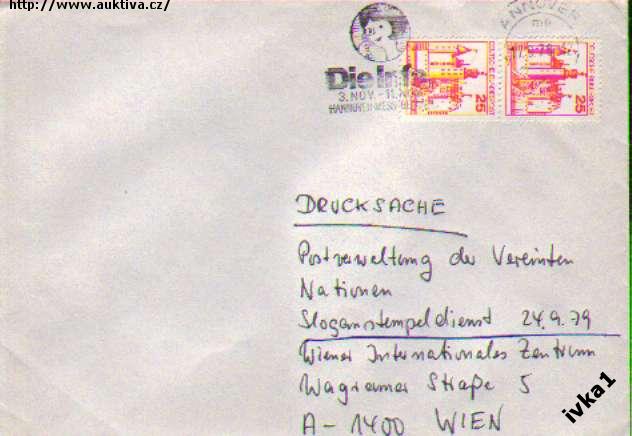 http://www.auktiva.cz/
HANNOVER
Die Infa
3. NOV. - 11. NOV.
25
25
DRUCKSACHE
Postverwaltung der Vereinten
Nationen
Sloganstempeldienst 24.9.79
Wiener Internationales Zentrum
Wagramer Straße 5
A-1400 WIEN
ivka1